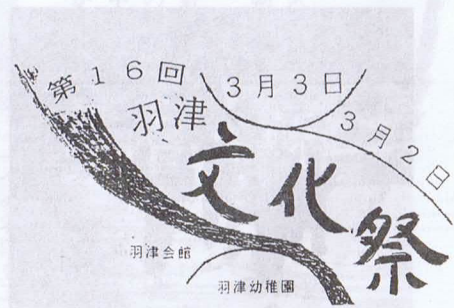 第16回
3月3日
3月2日
羽津
文化祭
羽津会館
羽津幼稚園